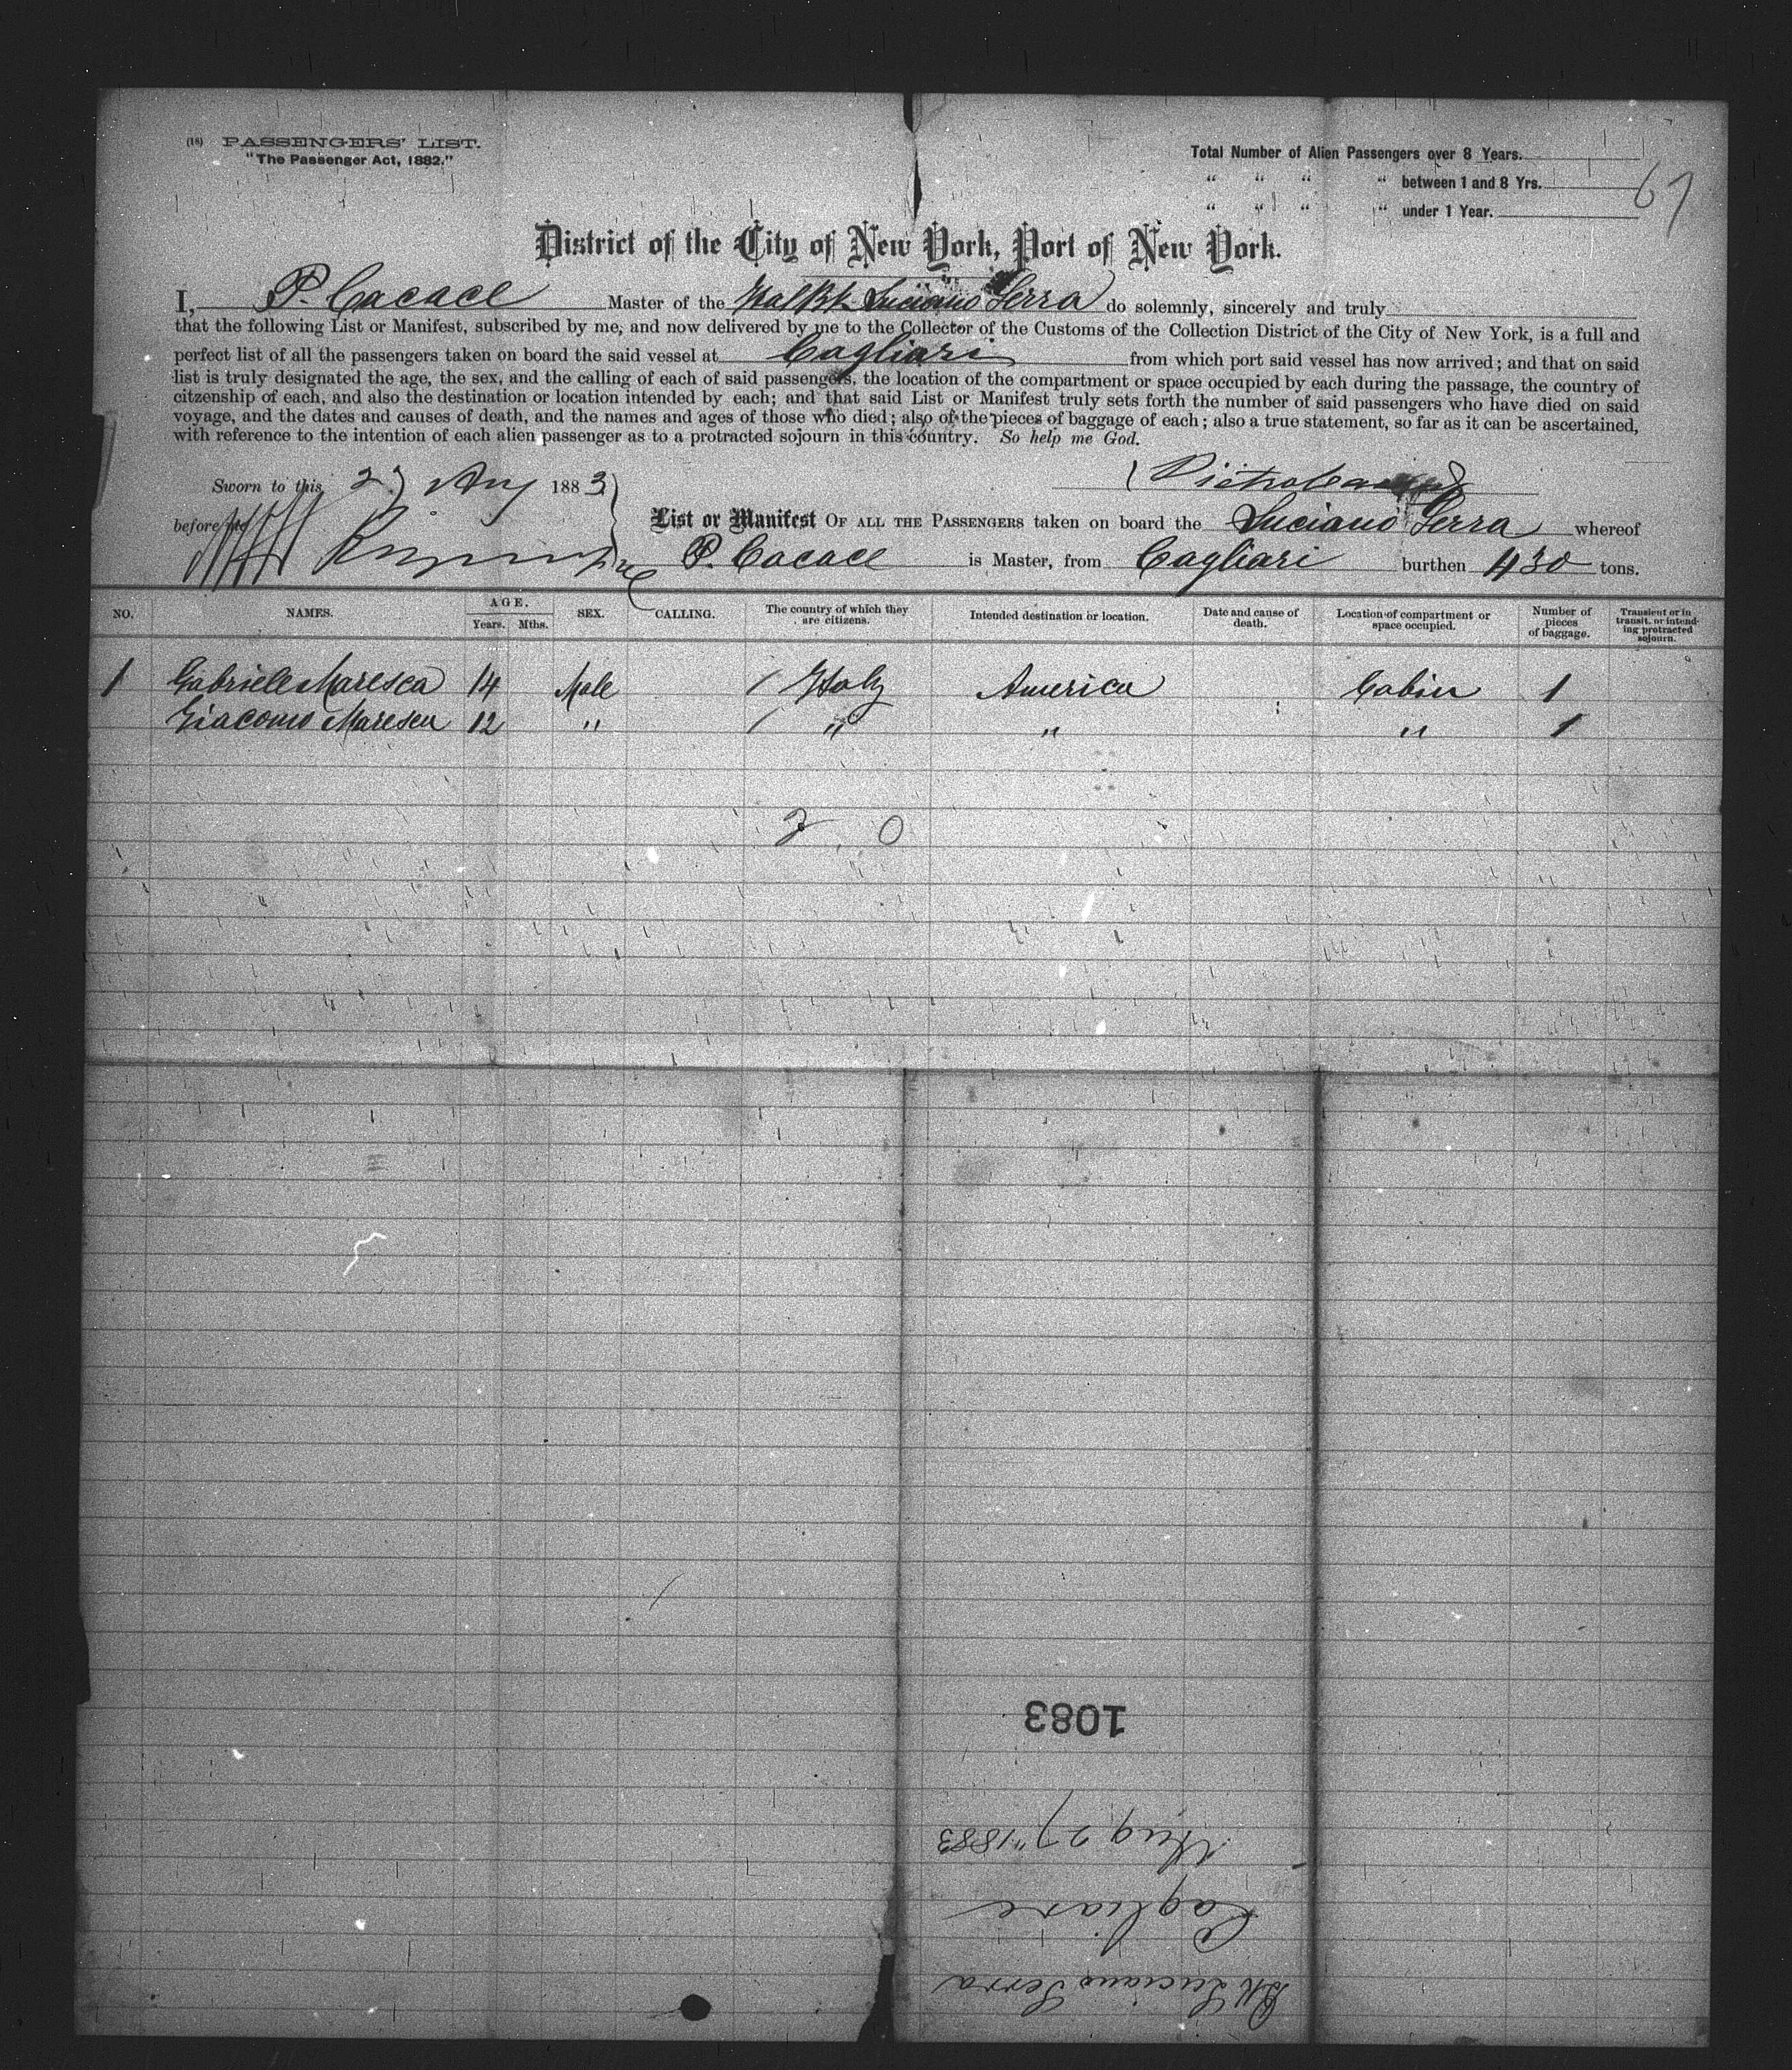 (18) PASSENGERS' LIST.
"The Passenger Act, 1882."
Total Number of Alien Passengers over 8 Years.
" " " " between 1 and 8 Yrs.
" " " " under 1 Year.
67
District of the City of New York, Port of New York.
I, P. Cacace Master of the Ital Bk Luciano Serra do solemnly, sincerely and truly
that the following List or Manifest, subscribed by me, and now delivered by me to the Collector of the Customs of the Collection District of the City of New York, is a full and
perfect list of all the passengers taken on board the said vessel at Cagliari from which port said vessel has now arrived; and that on said
list is truly designated the age, the sex, and the calling of each of said passengers, the location of the compartment or space occupied by each during the passage, the country of
citzenship of each, and also the destination or location intended by each; and that said List or Manifest truly sets forth the number of said passengers who have died on said
voyage, and the dates and causes of death, and the names and ages of those who died; also of the pieces of baggage of each; also a true statement, so far as it can be ascertained,
with reference to the intention of each alien passenger as to a protracted sojourn in this country. So help me God.
Sworn to this 27 Aug 1883
before me
List or Manifest OF ALL THE PASSENGERS taken on board the Luciano Serra whereof
P. Cacace is Master, from Cagliari burthen 430 tons.
NO. NAMES. AGE. Years. Mths. SEX. CALLING. The country of which they are citizens. Intended destination or location. Date and cause of death. Location of compartment or space occupied. Number of pieces of baggage. Transient or in transit, or intending protracted sojourn.
1 Gabriele Maresca 14 Male / Italy America Cabin 1
Giacomo Maresca 12 " / " " " 1
2 0
1083
Aug 27" 1883
Cagliare
Bk Luciano Serra